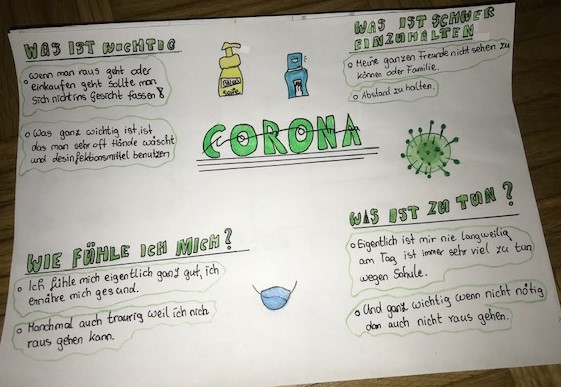 WAS IST WICHTIG
Wenn man raus geht oder
einkaufen geht sollte man
sich nicht ins Gesicht fassen
Was ganz wichtig ist, ist
das man sehr oft Hände wäscht
und desinfektionsmittel benutzen
seife
WAS IST SCHWER
EINZUHALTEN
Meine ganzen Freunde nicht sehen zu
können oder Familie.
Abstand zu halten.
CORONA
WIE FÜHLE ICH MICH?
Ich fühle mich eigentlich ganz gut, ich
ernähre mich gesund.
Manchmal auch traurig weil ich nich
raus gehen kann.
WAS IST ZU TUN?
Eigentlich ist mir nie langweilig
am Tag ist immer sehr viel zu tun
wegen Schule.
Und ganz wichtig wenn nicht nötig
dan auch nicht raus gehen.